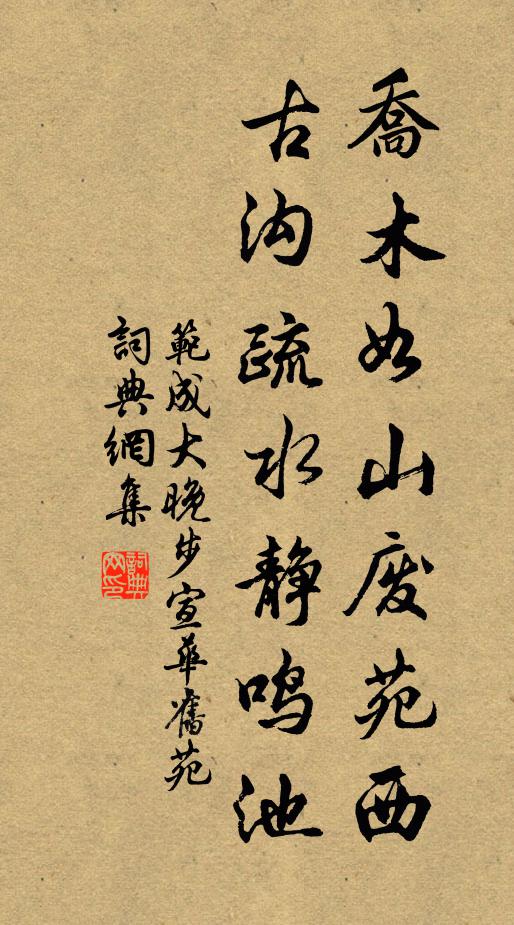 喬木如山废苑西
古沟疏水静鸣池
範成大晚步宣華舊苑
詞典網集
詞典网印